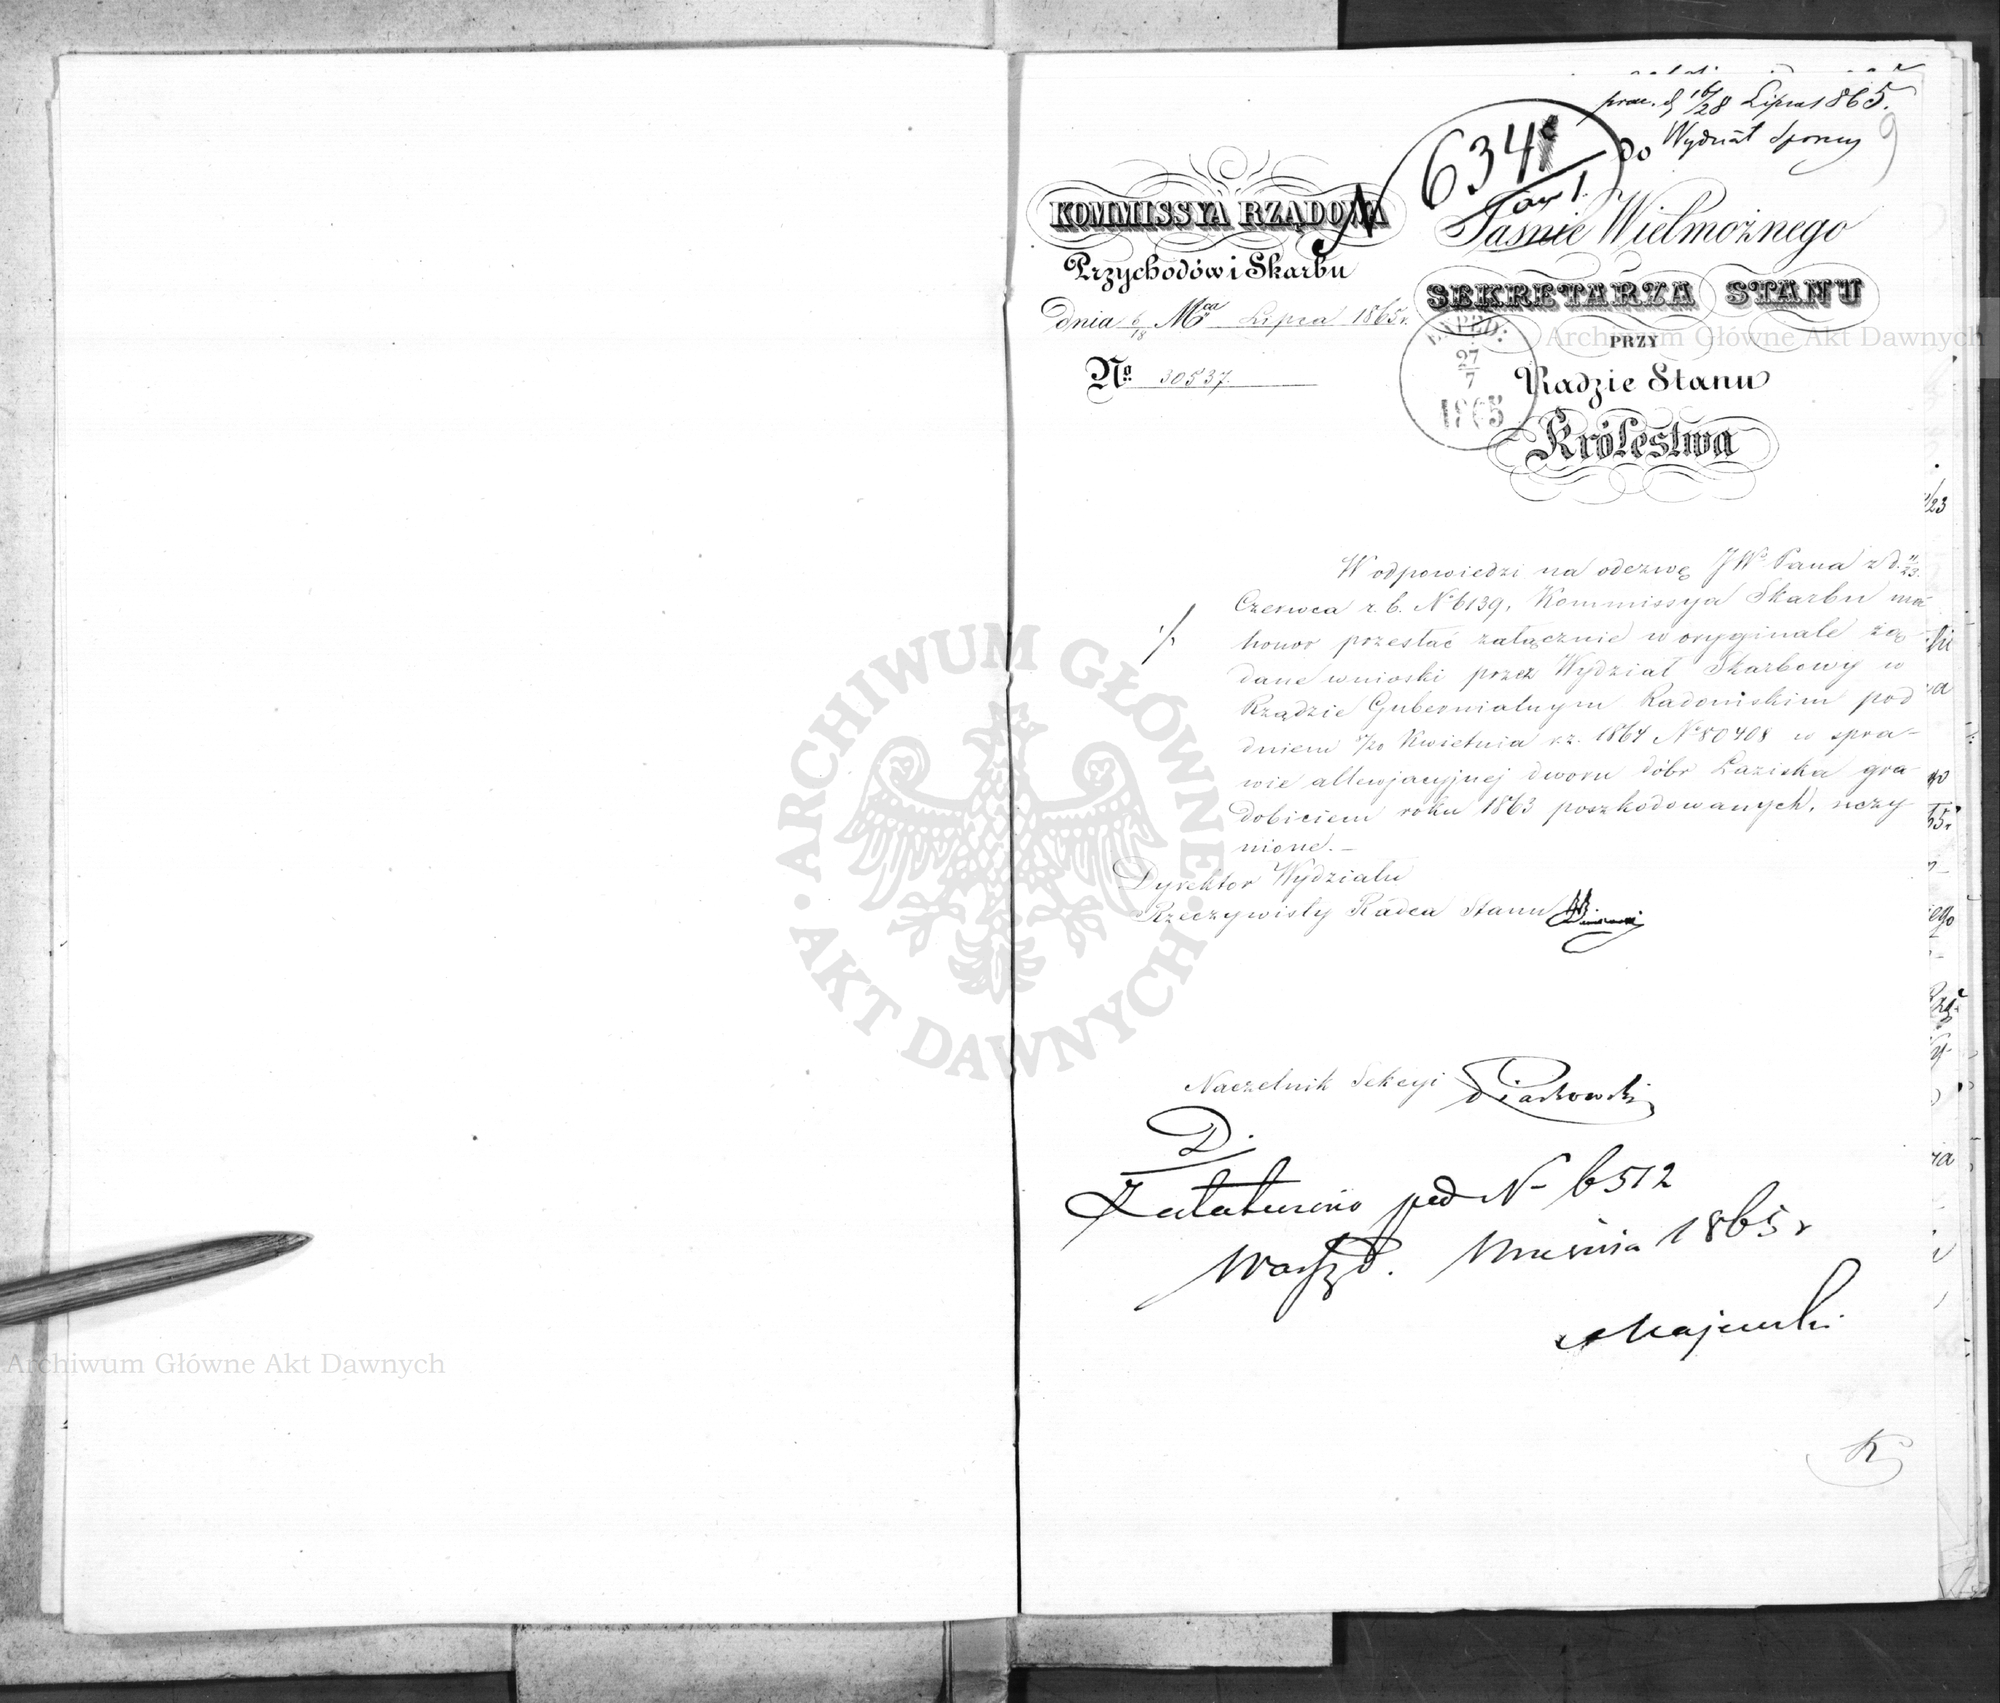 prae. d 16/28 Lipca 1865.
do Wydział Sporny
9
N 6341
KOMMISSYA RZĄDOWA
Przychodów i Skarbu
dnia 6/18 Mca Lipca 1865 r.
No. 30537.
Jaśnie Wielmożnego
SEKRETARZA STANU
PRZY
Radzie Stanu
Królestwa
EXPED:
27/7
1865
W odpowiedzi na odezwę JWo Pana z d. 11/23.
Czerwca r. b. No 6139, Kommissya Skarbu ma
honor przesłać załącznie w oryginale żą
dane wnioski przez Wydział Skarbowy w
Rządzie Gubernialnym Radomskim pod
dniem /20 Kwietnia r.z. 1864 No 80408 w spra-
wie allewjacyjnej dworu dóbr Łaziska gra
dobiciem roku 1863 poszkodowanych, uczy
nione. –
Dyrektor Wydziału
Rzeczywisty Radca Stanu
Naczelnik Sekcyi Piaskowski
D.
Załatwiono pod N– 6512
Warsz d. Września 1865 r
Majewski
K
ARCHIWUM GŁÓWNE AKT DAWNYCH
Archiwum Główne Akt Dawnych
Archiwum Główne Akt Dawnych